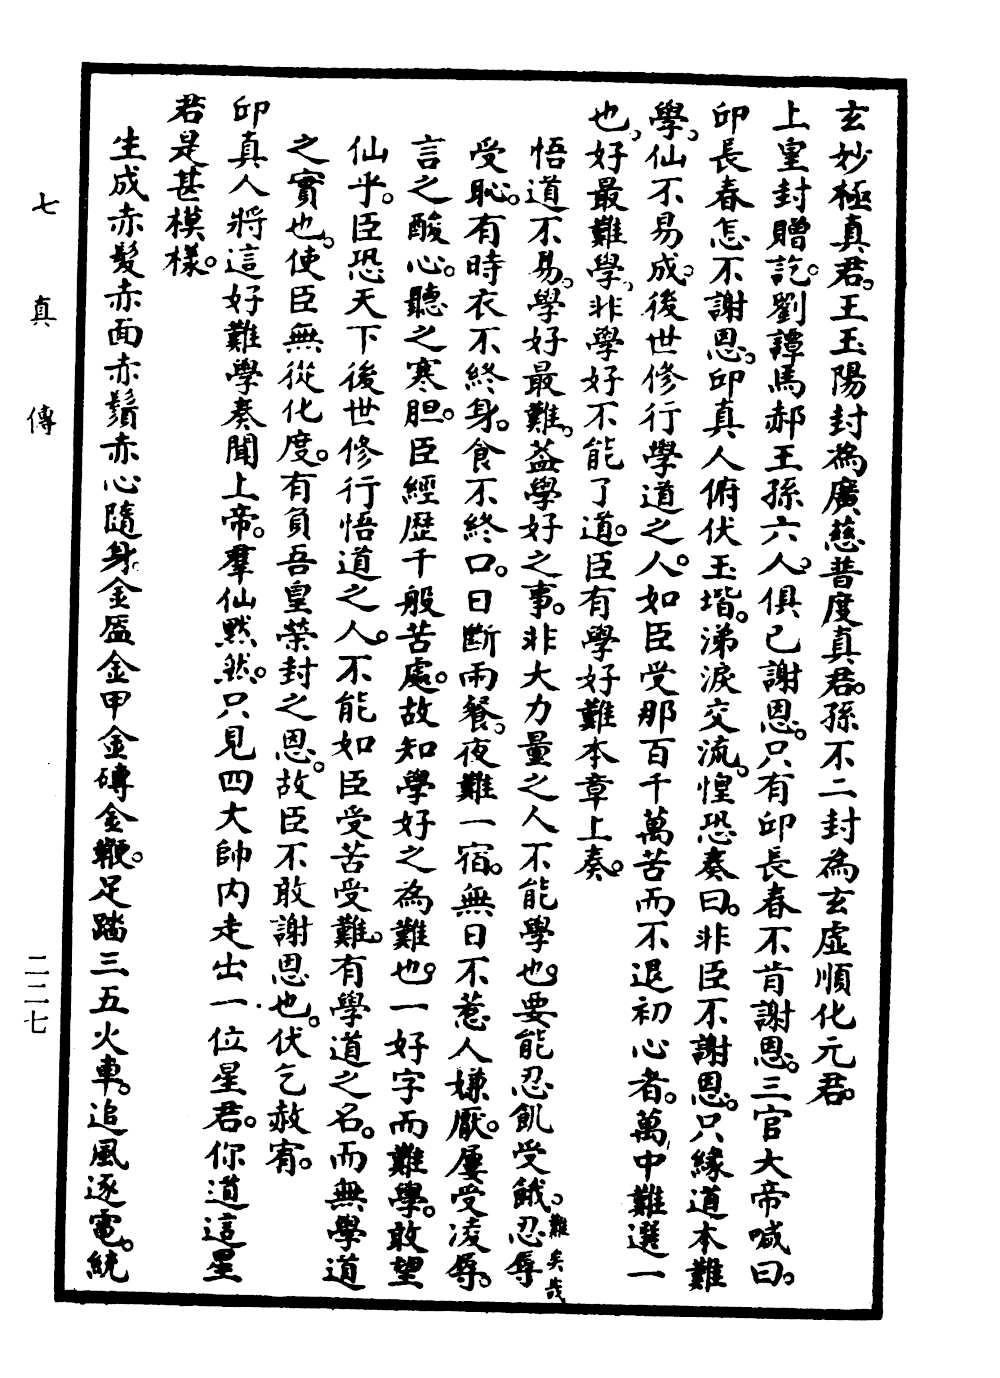 玄妙極真君。王玉陽封為廣慈普度真君。孫不二封為玄虛順化元君。
上皇封贈訖。劉譚馬郝王孫六人。俱已謝恩。只有邱長春不肯謝恩。三官大帝喊曰。
邱長春怎不謝恩。邱真人俯伏玉堦。涕淚交流。惶恐奏曰。非臣不謝恩。只緣道本難
學。仙不易成。後世修行學道之人。如臣受那百千萬苦而不退初心者。萬中難選一
也。好最難學。非學好不能了道。臣有學好難本章上奏。
悟道不易。學好最難。益學好之事。非大力量之人不能學也。要能忍飢受餓。難矣哉忍辱
受恥。有時衣不終身。食不終口。日斷兩餐。夜難一宿。無日不惹人嫌厭。屢受凌辱。
言之酸心。聽之寒胆。臣經歷千般苦處。故知學好之為難也。一好字而難學。敢望
仙乎。臣恐天下後世修行悟道之人。不能如臣受苦受難。有學道之名。而無學道
之實也。使臣無從化度。有負吾皇榮封之恩。故臣不敢謝恩也。伏乞赦宥。
邱真人將這好難學奏聞上帝。羣仙默然。只見四大帥內走出一位星君。你道這星
君是甚模樣。
生成赤髮赤面赤鬚赤心隨身。金盔金甲金磚金鞭。足踏三五火車。追風逐電。統
七真傳
二二七